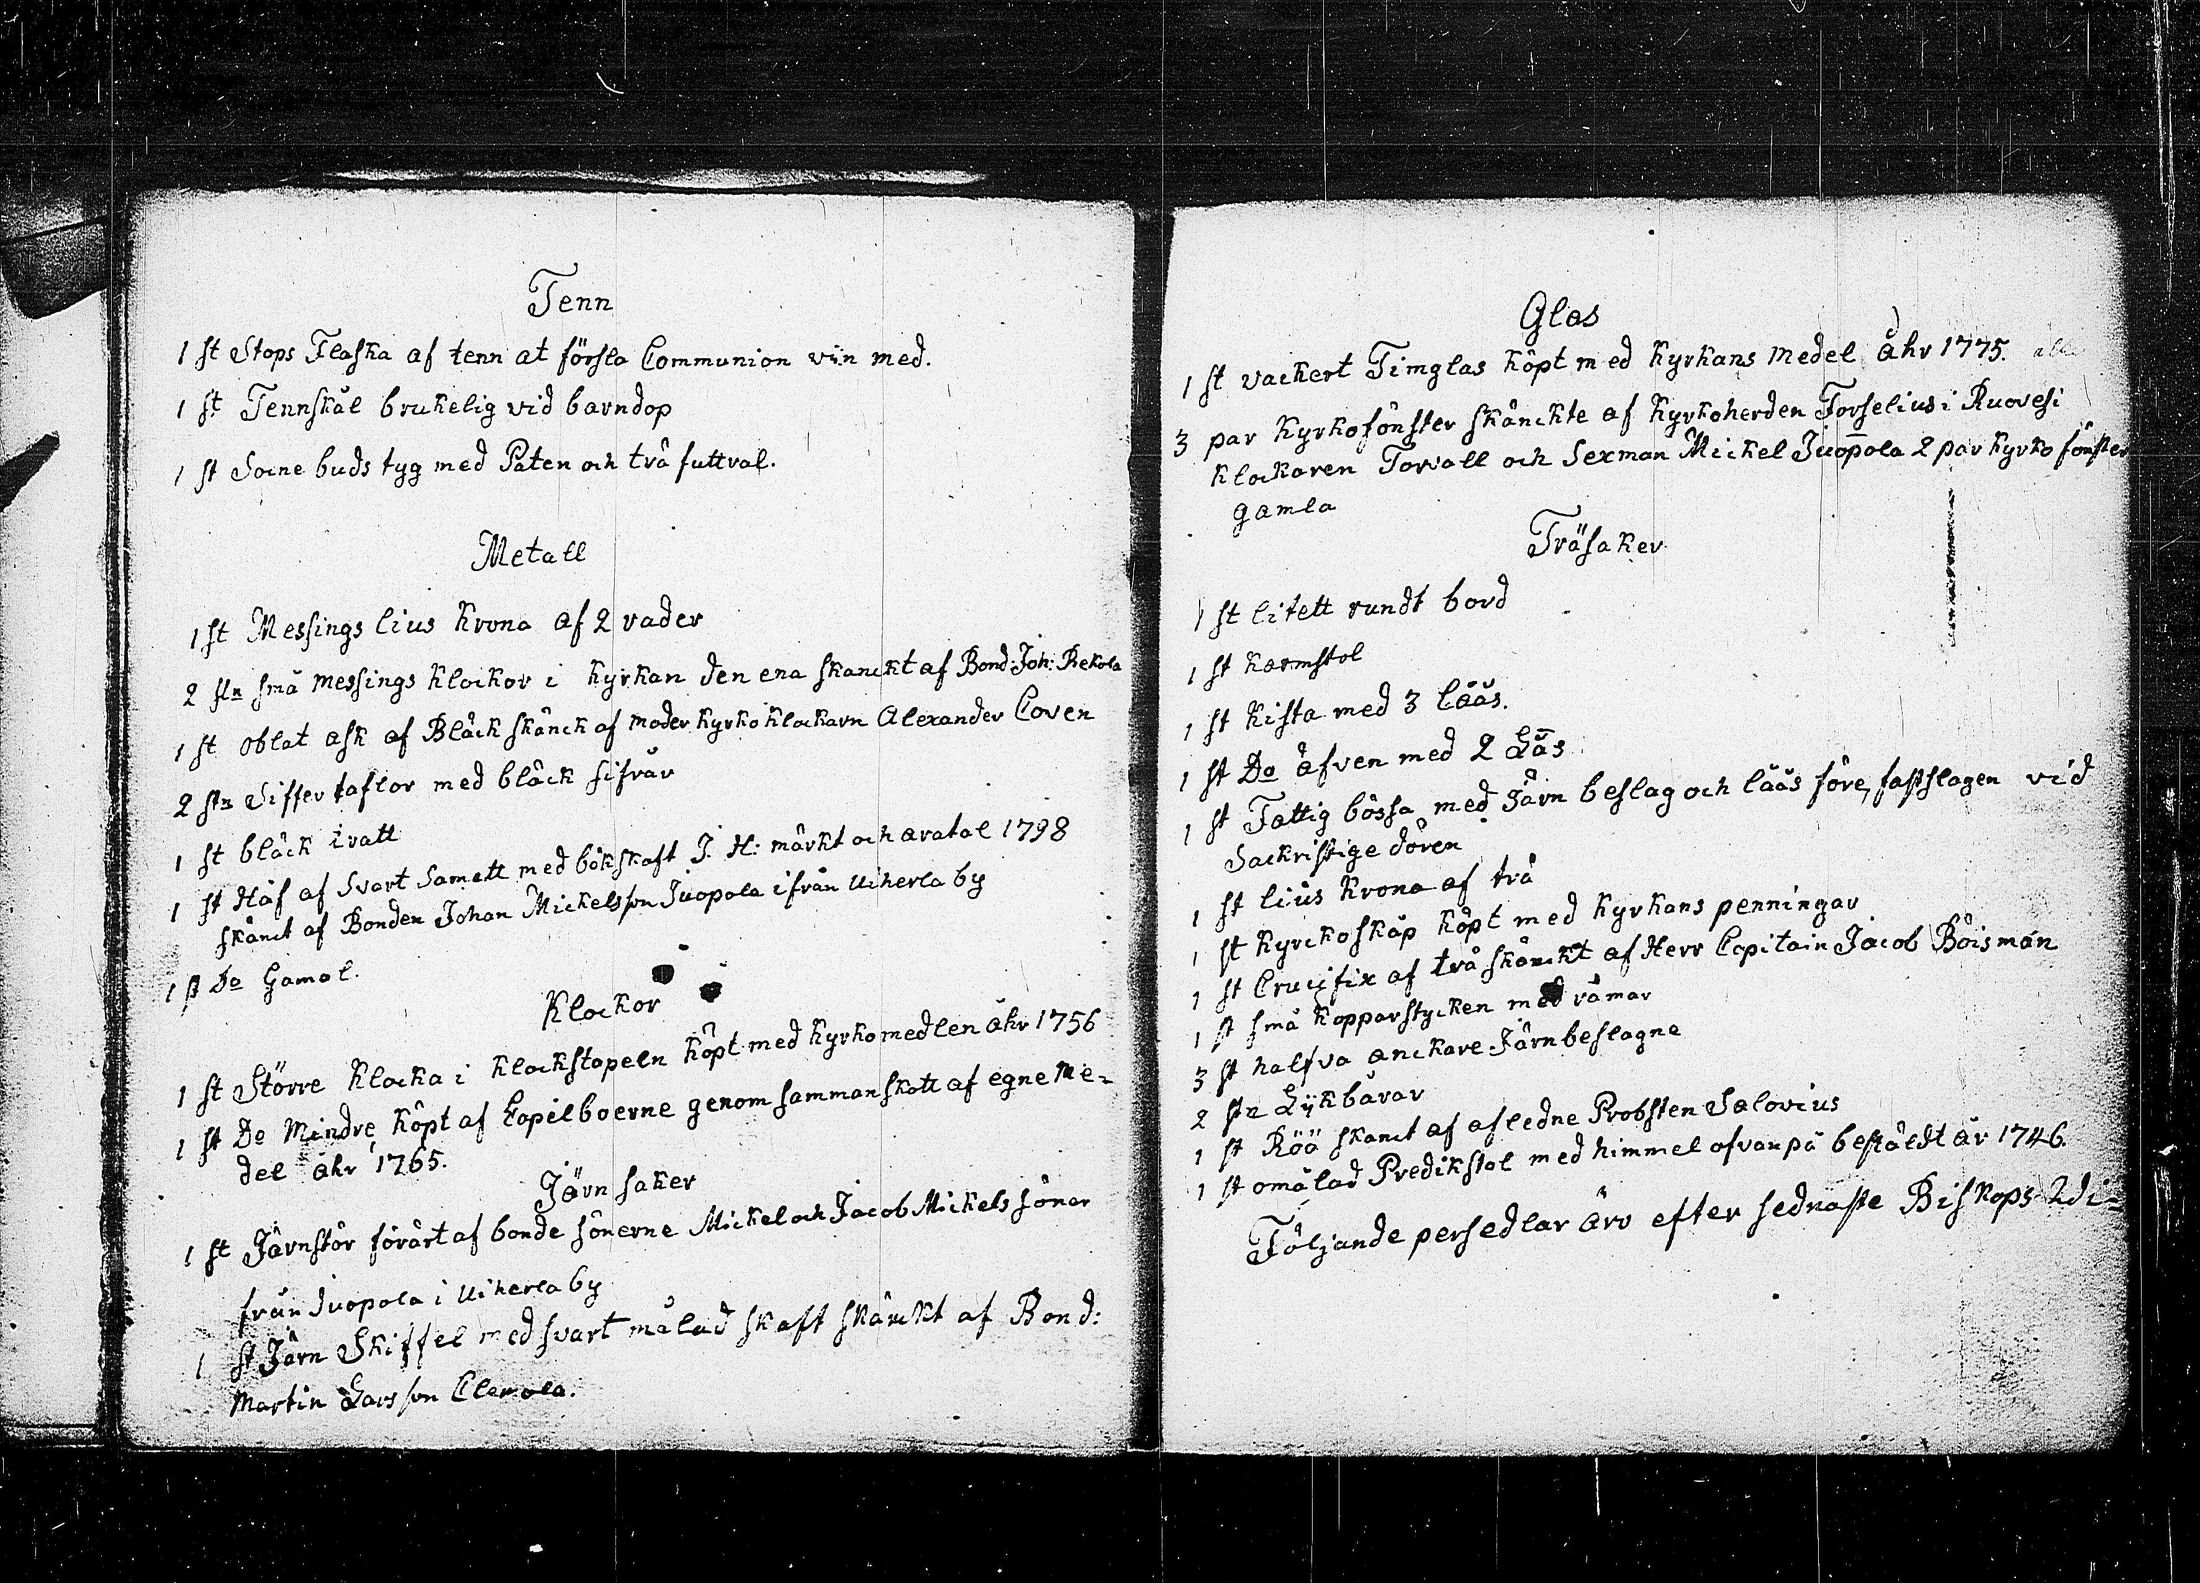 Tenn
1 st Stops Flaska af tenn at försla Communion vin med.
1 st Tennskål brukelig vid barndop
1 st Socne buds tyg med Paten och trä futtral.
Metall
1 st Messings lius Krona af 2 rader
2 stn små messings Klockor i Kyrkan den ena skanckt af Bond: Joh: Rekola
1 st oblat ask af Bläck skänck af moder Kyrko Klockarn Alexander Coven
2 stn Siffer taflor med bläck sifrar
1 st bläck tratt
1 st Håf af Svart Samett med bökskaft J. H: märkt och aratal 1798
skänct af Bonden Johan Mickelsson Juopola ifrån Uiherla by
1 st Do Gamal.
Klockor
1 st Större Klocka i Klockstapeln köpt med Kyrkomedlen åhr 1756
1 st Do Mindre köpt af Capilboerne genom sammanskott af egne Me=
del åhr 1765.
Järn saker
1 st Järnstör förärt af bonde sönerne Mickel och Jacob Mickels söner
från Juopola i Uiherla by
1 st Järn Skiffel med svart målad skaft skänckt af Bond:
Martin Larsson Clemola.
Glas
1 st vackert Timglas köpt med Kyrkans medel åhr 1775.
3 par Kyrkofönster skänckte af Kyrkoherden Forselius i Ruovesi
Klockaren Torvall och Sexman Mickel Juopola 2 par Kyrko fönster
gamla
Träsaker
1 st litett rundt bord
1 st Karmstol
1 st Kista med 3 låås.
1 st Do äfven med 2 Lås
1 st Fattig bössa med Järn beslag och låås före, fastslagen vid
Sackristige dören
1 st lius Krona af trä
1 st Kyrckoskåp köpt med Kyrkans penningar
1 st Crucifix af trä skänckt af Herr Capitain Jacob Böisman
1 st små Kopparstycken med rämar
3 st halfva anckare Järnbeslagne
2 stn Lykbårar
1 st Röö skanct af afledne Probsten Salovius
1 st omålad Predikstol med himmel ofvanpå bestäldt år 1746.
Följande persedlar äro efter sednaste Biskops Wi=